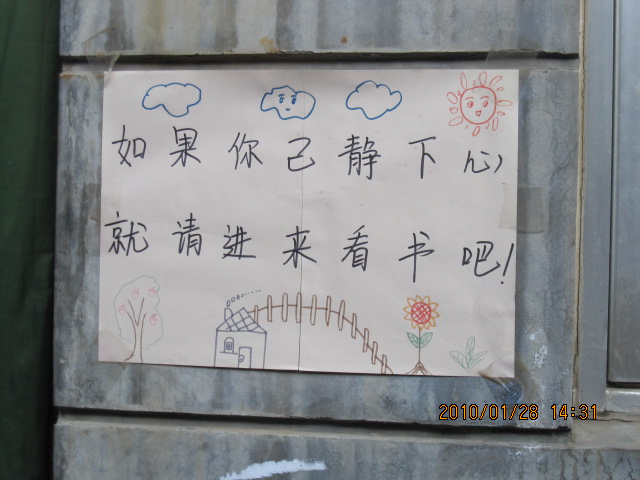 如果你已静下心
就请进来看书吧!
2010/01/28 14:31